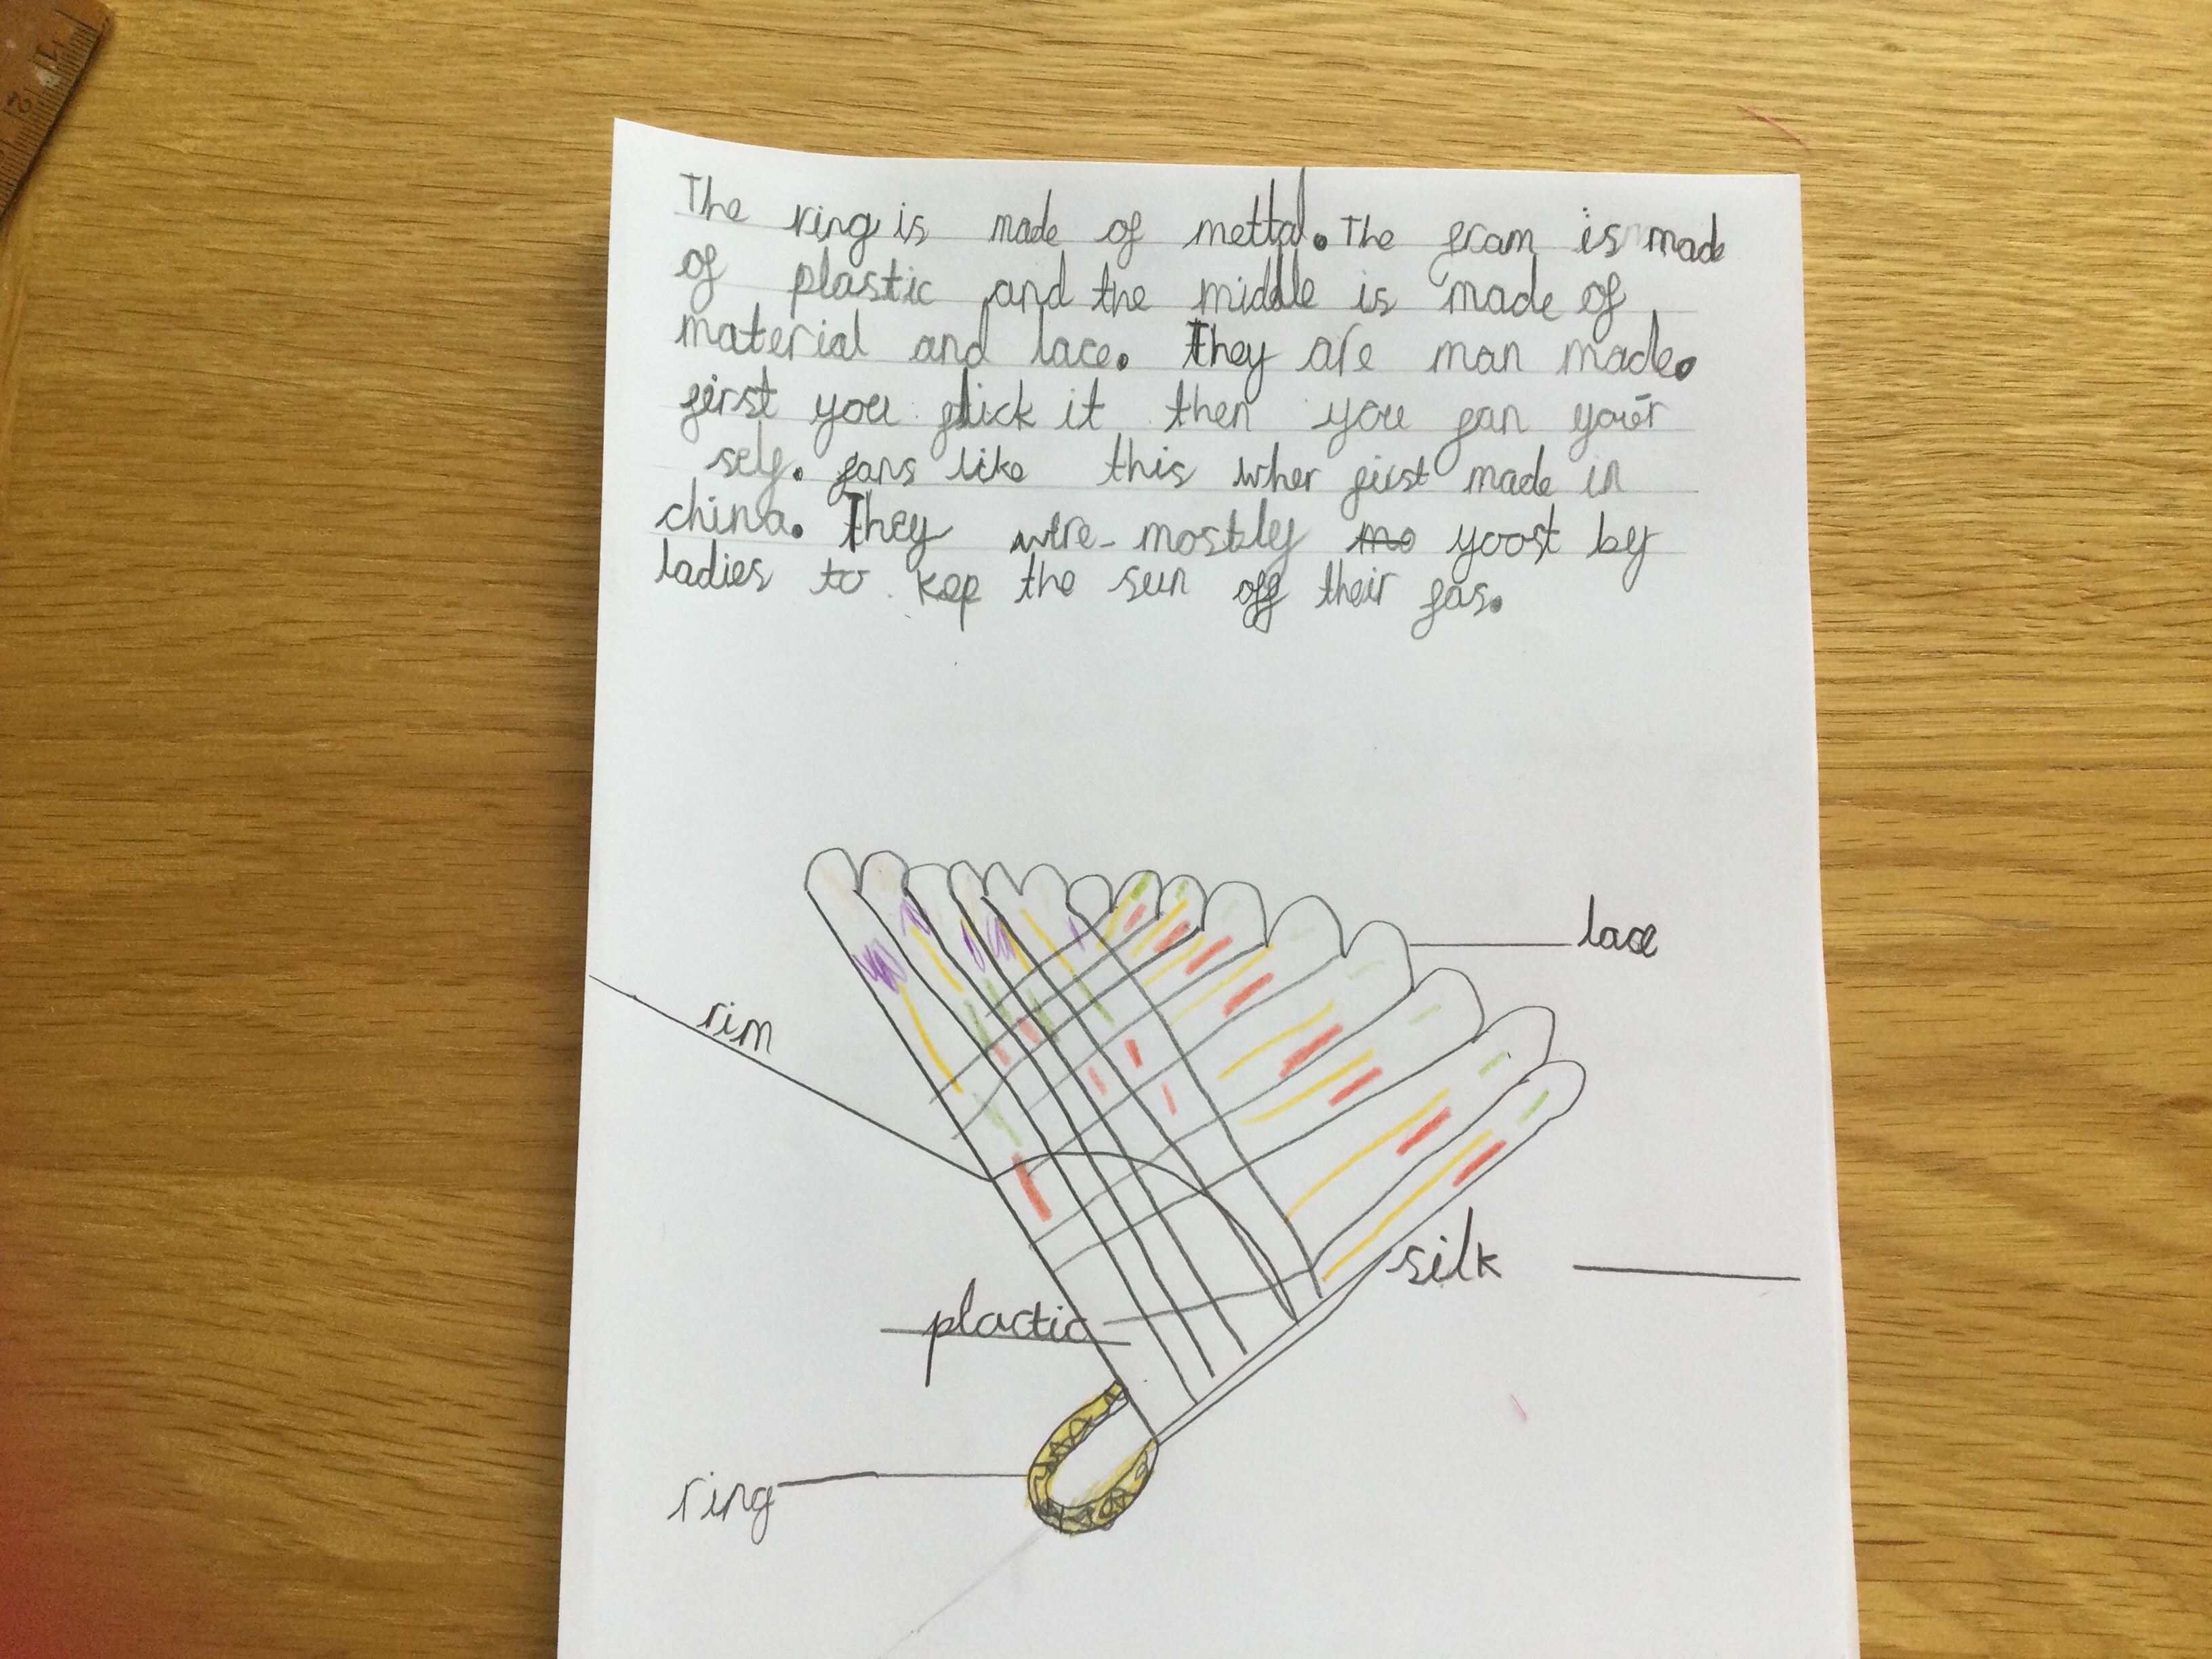 The ring is made of mettal. The fram is made
of plastic and the middle is made of
material and lace. They are man made.
first you flick it then you fan your
self. fans like this wher first made in
china. They were mostly mo yoost by
ladies to kep the sun off their fas.
lace
rim
silk
plactic
ring
1
2